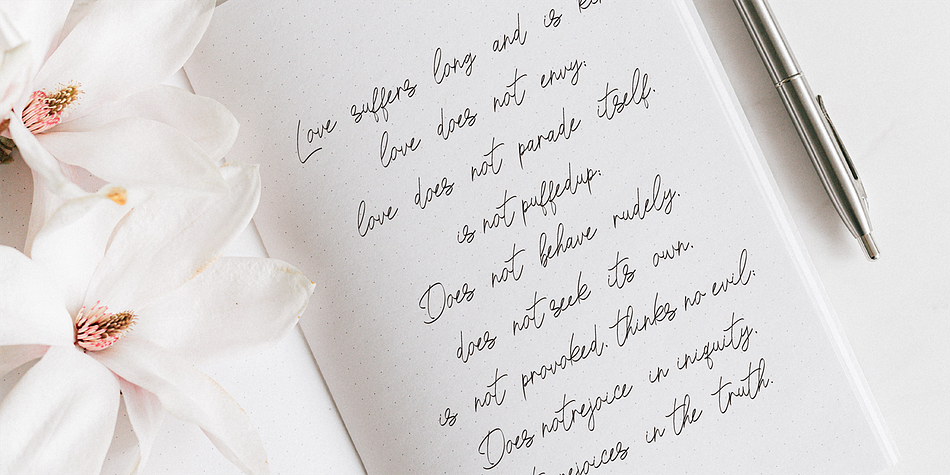 Love suffers long and is
love does not envy;
love does not parade itself.
is not puffedup;
Does not behave rudely.
does not seek its own.
is not provoked. thinks no evil;
Does notrejoice in iniquity.
rejoices in the truth.